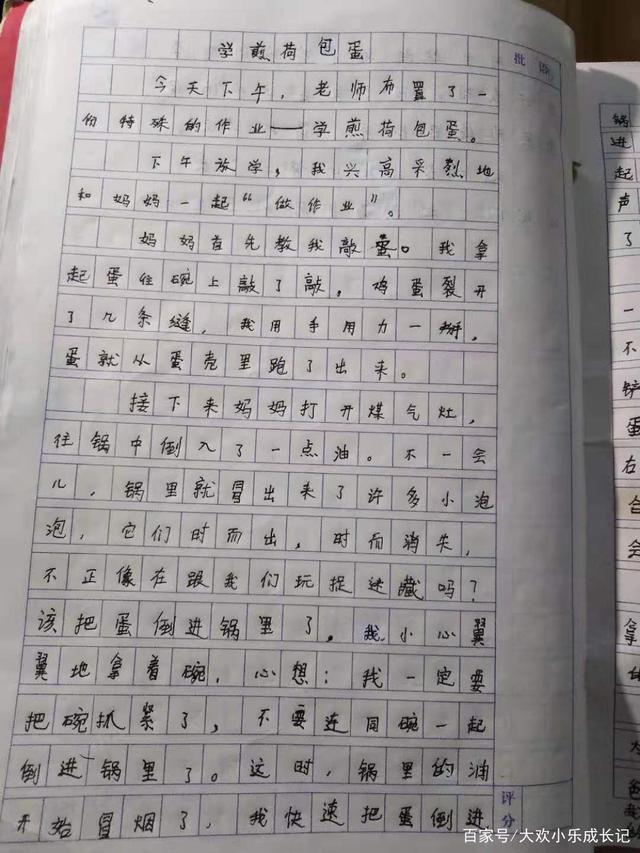 学煎荷包蛋
批语
今天下午，老师布置了一
份特殊的作业——学煎荷包蛋。
下午放学，我兴高采烈地
和妈妈一起“做作业”。
妈妈首先教我敲蛋。我拿
起蛋往碗上敲了敲，鸡蛋裂开
了几条缝，我用手用力一掰，
蛋就从蛋壳里跑了出来。
接下来妈妈打开煤气灶，
往锅中倒入了一点油。不一会
儿，锅里就冒出来了许多小泡
泡，它们时而出，时而消失，
不正像在跟我们玩捉迷藏吗？
该把蛋倒进锅里了，我小心翼
翼地拿着碗，心想：我一定要
把碗抓紧了，不要连同碗一起
倒进锅里了。这时，锅里的油
开始冒烟了，我快速把蛋倒进
评分
锅
进
起
声
了
一
不
铲
蛋
右
会
拿
百家号/大欢小乐成长记